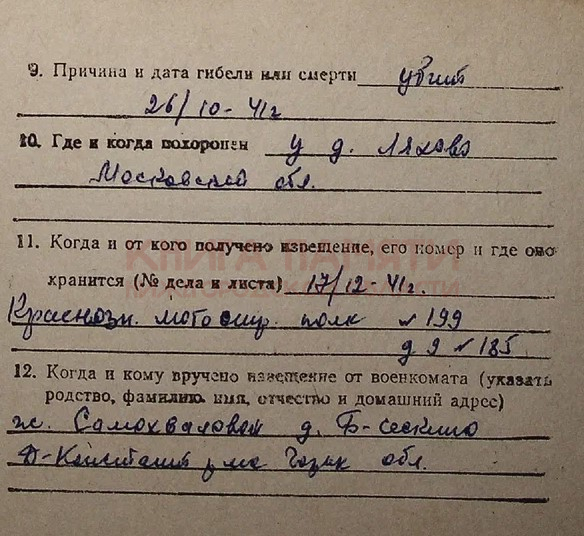 9. Причина и дата гибели или смерти убит
26/10-41г
10. Где и когда похоронен у д. Ляхово
Московской обл.
11. Когда и от кого получено извещение, его номер и где оно
КНИГА ПАМЯТИ
хранится (№ дела и листа) 17/12-41г.
Краснозн. мотостр. полк №199
д 9 №185
12. Когда и кому вручено извещение от военкомата (указать
родство, фамилию, имя, отчество и домашний адрес)
ж. Самохваловой д. Б-Сескино
Д-Константиновс обл.